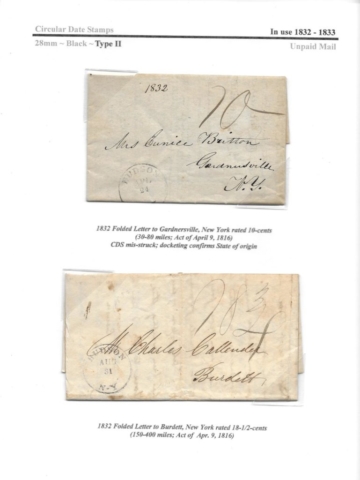 Circular Date Stamps
In use 1832 - 1833
28mm – Black – Type II
Unpaid Mail
1832
10
Mrs Eunice Britton
Gardnersville
N.Y.
HUDSON
1832 Folded Letter to Gardnersville, New York rated 10-cents
(30-80 miles; Act of April 9, 1816)
CDS mis-struck; docketing confirms State of origin
HUDSON
AUG
31
N.Y.
Mr Charles Callender
Burdett
1832 Folded Letter to Burdett, New York rated 18-1/2-cents
(150-400 miles; Act of Apr. 9, 1816)